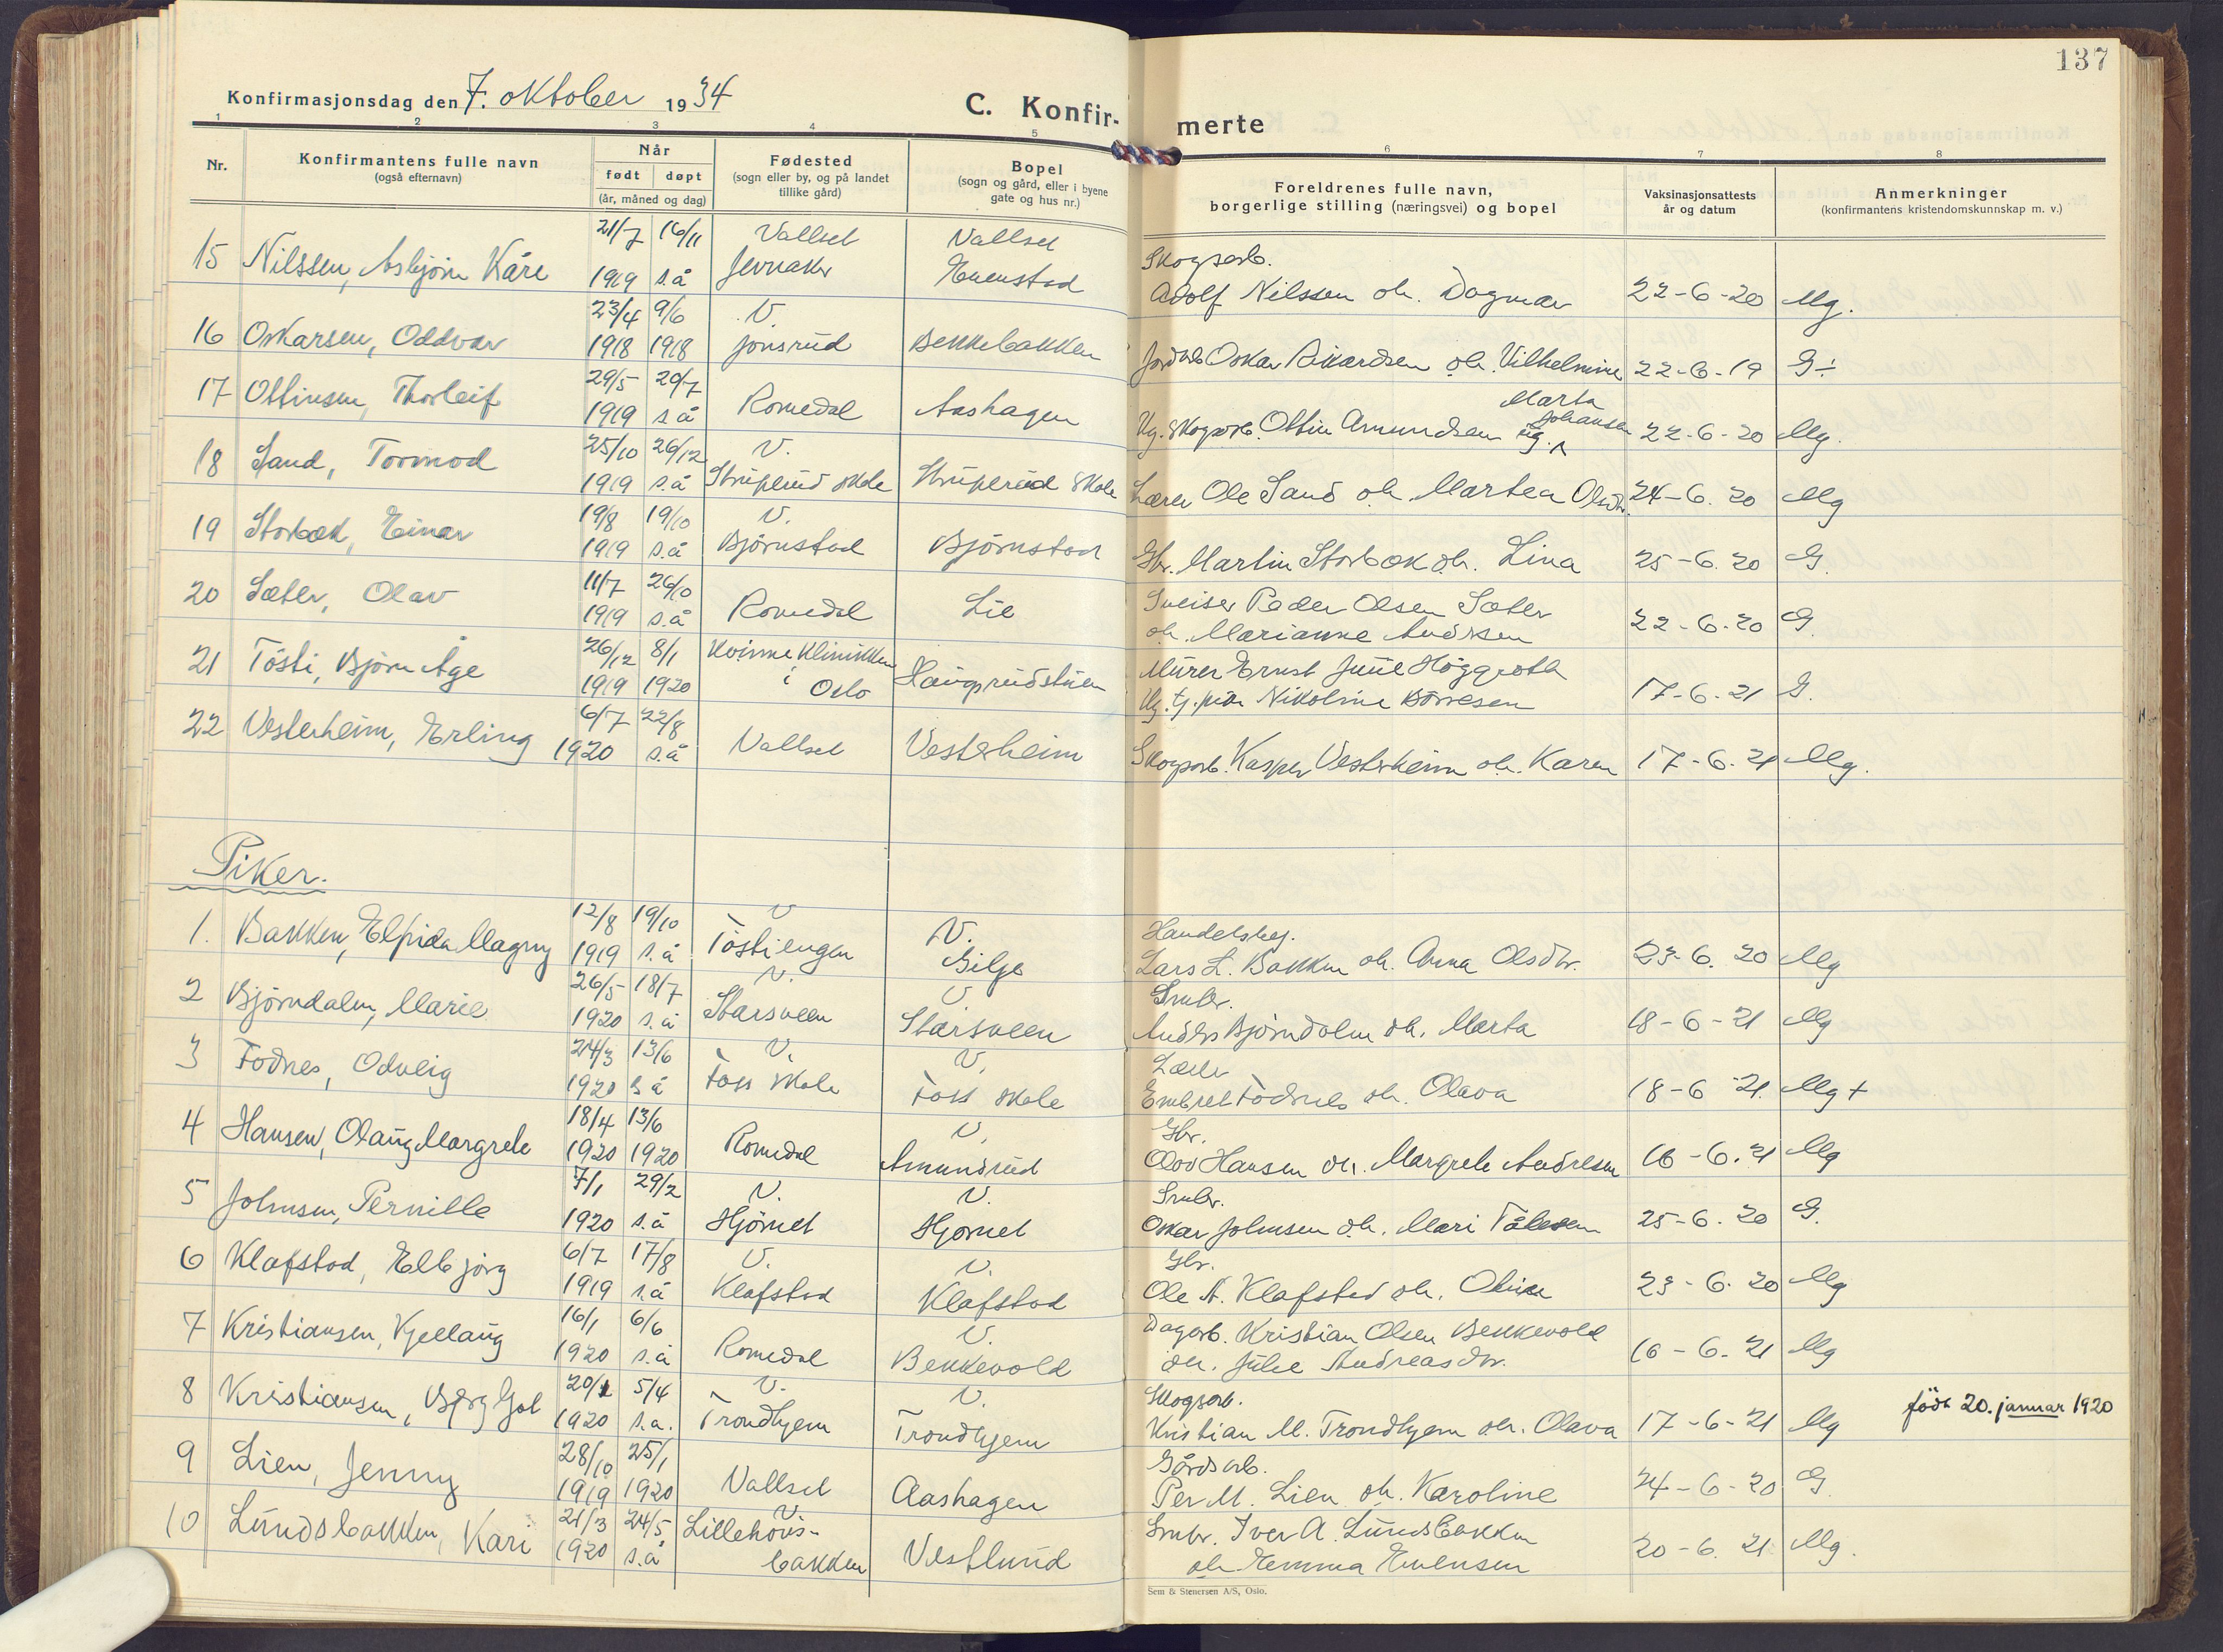 137
Konfirmasjonsdag den 7. oktober 1934
C. Konfir-
merte
1 2 3 4 5 6 7 8
Nr.
Konfirmantens fulle navn
(også efternavn)
Når
født døpt
(år, måned og dag)
Fødested
(sogn eller by, og på landet
tillike gård)
Bopel
(sogn og gård, eller i byene
gate og hus nr.)
Foreldrenes fulle navn,
borgerlige stilling (næringsvei) og bopel
Vaksinasjonsattests
år og datum
Anmerkninger
(konfirmantens kristendomskunnskap m. v.)
21/7 16/11 Vallset Vallset Skogsarb.
15 Nilssen, Asbjörn Kåre 1919 s.å Jevnaker Evenstad Adolf Nilssen oh. Dagmar 22-6-20 Mg.
23/4 9/6 V.
16 Oskarsen, Oddvar 1918 1918 Jonsrud Bekkebakken Jordarb Oskar Rikardsen oh. Vilhelmine 22-6-19 G÷
29/5 20/7 Marta
17 Ottinsen, Thorleif 1919 s å Romedal Aashagen Ug. Skogsarb. Ottin Amundsen ug. Johansen 22-6-20 Mg.
25/10 26/12 V.
18 Sand, Tormod 1919 s.å Struperud skole Struperud skole Lærer Ole Sand oh. Martea Olsdtr. 24-6.20 Mg
19/8 19/10 V.
19 Storbæk, Einar 1919 s.å Björnstad Björnstad Gbr. Martin Storbæk oh. Lina 25-6.20 G.
11/7 26/10 Sveiser Peder Olsen Sæter
20 Sæter, Olav 1919 s.å Romedal Lie oh. Marianne Andrsen 22-6-20 G.
26/12 8/1 Kvinneklinikken Murer Ernst Juul Höggroth
21 Tösti, Björn Åge 1919 1920 i Oslo Haugsrudstuen Ug. tj.pike Nikoline Börresen 17-6-21 G.
6/7 22/8
22 Vesterheim, Erling 1920 s.å Vallset Vesterheim Skogsarb. Kasper Vesterheim oh. Karen 17-6-21 Mg.
Piker.
12/8 19/10 V V. Handelsbej.
1. Bakken, Elfrida Magny 1919 s.å Töstiengen Gilje Lars L. Bakken oh. Anna Olsdtr. 23-6.20 Mg
26/5 18/7 V. V. Smbr.
2 Björndalen, Marie 1920 s.å Starsveen Starsveen Anders Björndalen oh. Marta 18-6-21 Mg
24/3 13/6 V. V. Lærer
3 Fodnes, Odveig 1920 s å Foss skole Foss skole Embret Fodnes oh. Olava 18-6-21. Mg +
18/4 13/6 V. Gbr.
4 Hansen, Olaug Margrete 1920 1920 Romedal Amundrud Olov Hansen oh. Margrete Andresen 16-6.21 Mg
7/1 29/2 V. V. Smbr.
5 Johnsen, Pernille 1920 s.å Hjörnet Hjornet Oskar Johnsen oh. Mari Pålesen 25-6.20 G.
6/7 17/8 V. V. Gbr.
6 Klafstad, Elbjörg 1919 s.å Klafstad Klafstad Ole A. Klafstad oh. Oline 23-6.20 Mg
16/1 6/6 V. Dagarb. Kristian Olsen Bekkevold
7 Kristiansen, Kjellaug 1920 s.å Romedal Bekkevold oh. Julie Andreasdtr. 16-6.21 Mg
20/1 5/4 V. V. Skogsarb.
8 Kristiansen, Bjørg Gol 1920 s.a. Trondhjem Trondhjem Kristian M. Trondhjem oh. Olava 17-6-21 Mg född 20. januar 1920
28/10 25/1 Gårdsarb.
9 Lien, Jenny 1919 1920 Vallset Aashagen Per M. Lien oh. Karoline 24-6-20 G.
21/3 24/5 V. Lillehovs- Smbr. Iver A. Lundsbakken
10 Lundsbakken, Kari 1920 s.å bakken Vestlund oh Emma Evensen 20-6.21 Mg.
Sem & Stenersen A/S, Oslo.